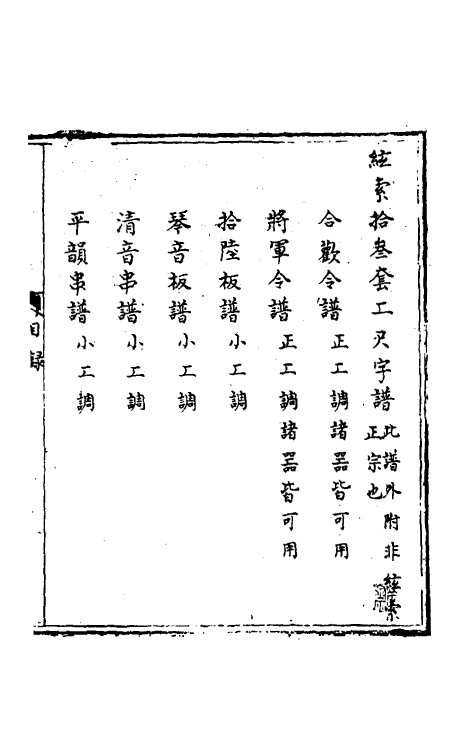 絃索拾叄套工尺字譜 此譜外附非絃索正宗也
合歡令譜 正工調諸器皆可用
將軍令譜 正工調諸器皆可用
拾陸板譜 小工調
琴音板譜 小工調
清音串譜 小工調
平韻串譜 小工調
目錄